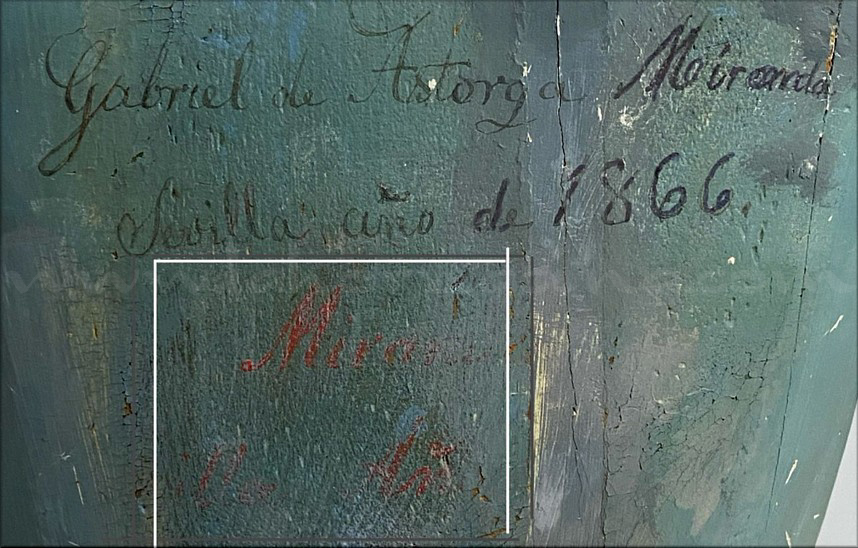 Gabriel de Astorga Miranda
Sevilla año de 1866.
Miran
illa Añ